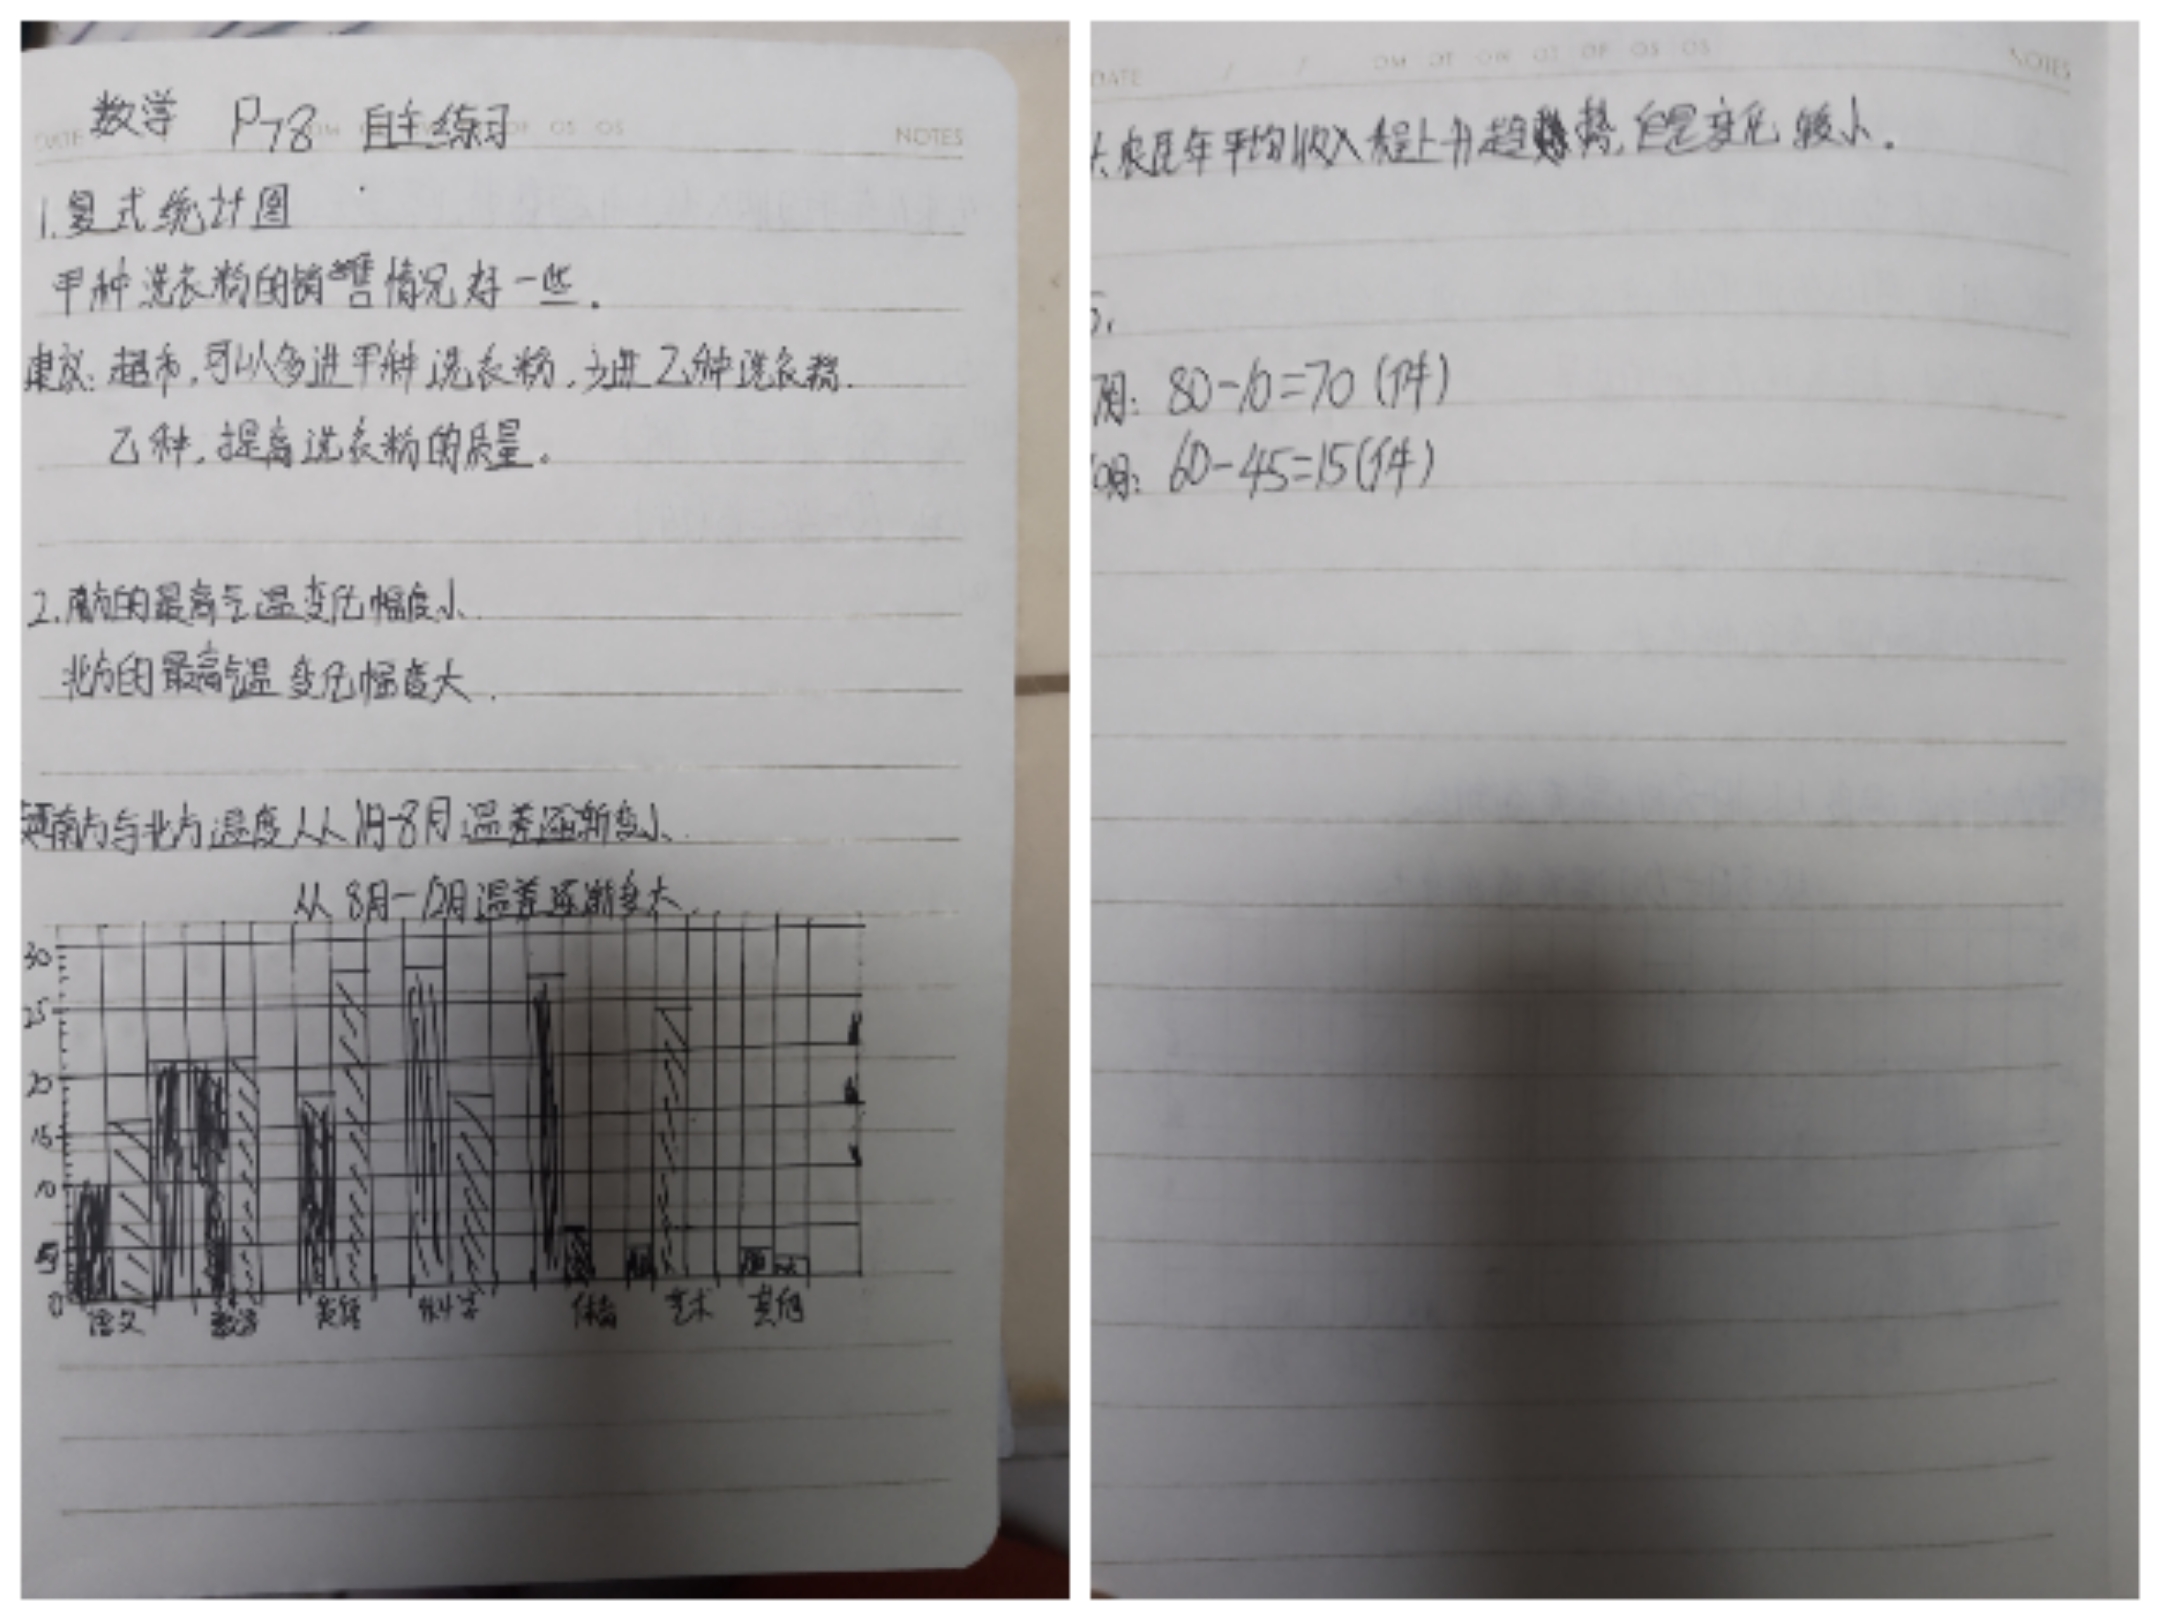 数学 P78 自主练习
DATE NOTES
1.复式统计图
甲种洗衣粉的销售情况好一些.
建议:超市,可以多进甲种洗衣粉,少进乙种洗衣粉.
乙种,提高洗衣粉的质量。
2.南方的最高气温变化幅度小
北方的最高气温变化幅度大.
南方与北方温度从1月-8月温差逐渐变小.
从8月-12月温差逐渐变大.
30
25
20
15
10
5
0
语文 数学 英语 科学 体育 艺术 其他
DATE / / NOTES
农民年平均收入程上升趋势,但是变化较小.
5.
7月: 80-10=70(件)
10月: 60-45=15(件)